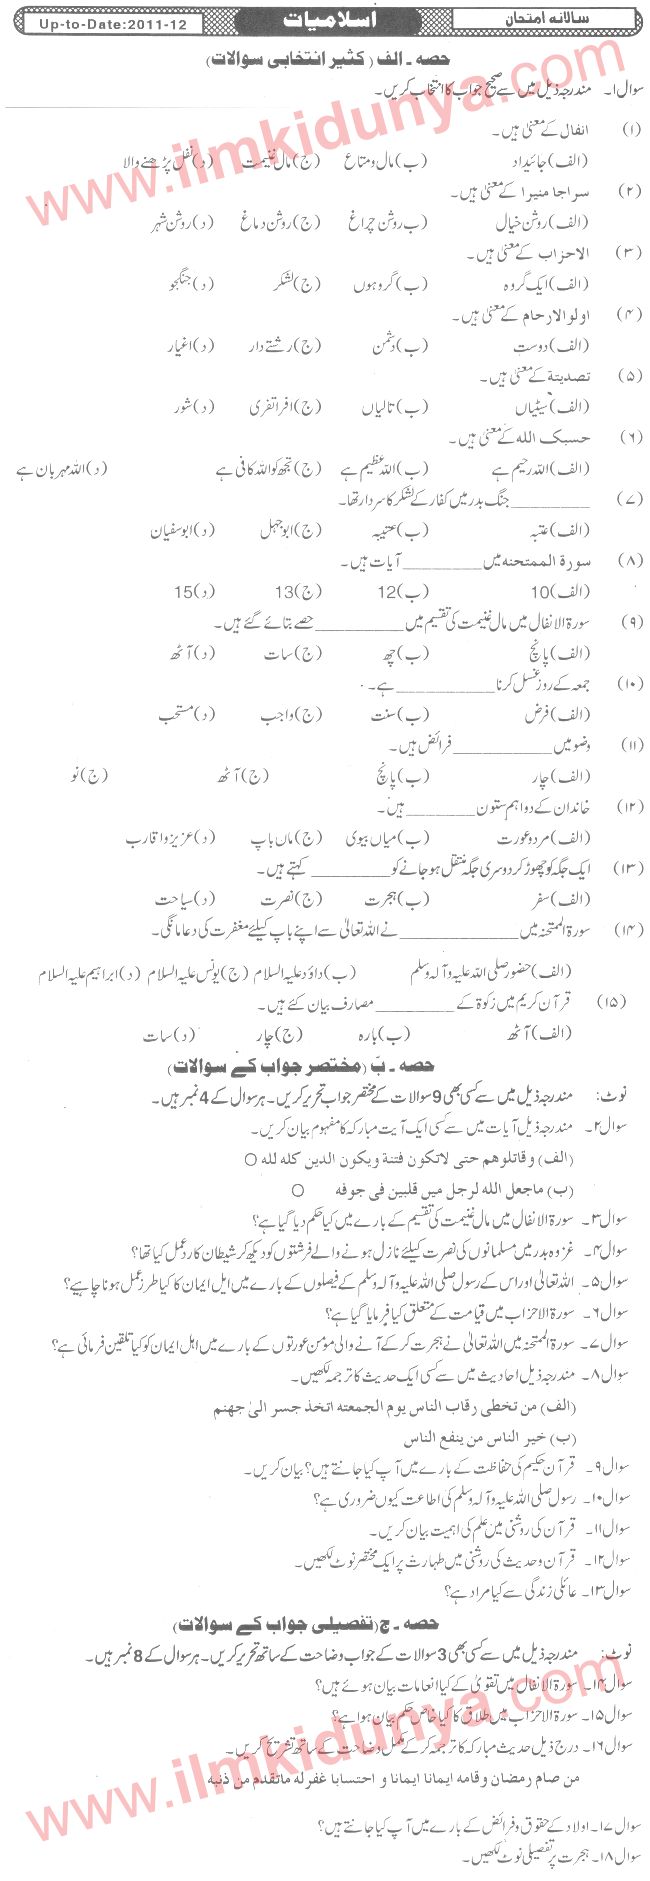 سالانہ امتحان
اسلامیات
Up-to-Date:2011-12
حصہ ۔ الف ( کثیر انتخابی سوالات)
سوال ۱۔ مندرجہ ذیل میں سے صحیح جواب کا انتخاب کریں۔
(۱) انفال کے معنی ہیں۔
(الف) جائیداد (ب) مال و متاع (ج) مال غنیمت (د) نفل پڑھنے والا
(۲) سراجا منیرا کے معنی ہیں۔
(الف) روشن خیال (ب روشن چراغ (ج) روشن دماغ (د) روشن شہر
(۳) الاحزاب کے معنی ہیں۔
(الف) ایک گروہ (ب) گروہوں (ج) لشکر (د) جنگجو
(۴) اولوالارحام کے معنی ہیں۔
(الف) دوست (ب) دشمن (ج) رشتے دار (د) اغیار
(۵) تصدیتة کے معنی ہیں۔
(الف) سیٹیاں (ب) تالیاں (ج) افراتفری (د) شور
(۶) حسبک اللہ کے معنی ہیں۔
(الف) اللہ رحیم ہے (ب) اللہ عظیم ہے (ج) تجھ کو اللہ کافی ہے (د) اللہ مہربان ہے
(۷) ________ جنگ بدر میں کفار کے لشکر کا سردار تھا۔
(الف) عتبہ (ب) عتیبہ (ج) ابوجہل (د) ابوسفیان
(۸) سورة الممتحنه میں ________ آیات ہیں۔
(الف) 10 (ب) 12 (ج) 13 (د) 15
(۹) سورۃ الانفال میں مال غنیمت کی تقسیم میں ________ حصے بتائے گئے ہیں۔
(الف) پانچ (ب) چھ (ج) سات (د) آٹھ
(۱۰) جمعہ کے روز غسل کرنا ________ ہے۔
(الف) فرض (ب) سنت (ج) واجب (د) مستحب
(۱۱) وضو میں ________ فرائض ہیں۔
(الف) چار (ب) پانچ (ج) آٹھ (ج) نو
(۱۲) خاندان کے دو اہم ستون ________ ہیں۔
(الف) مرد و عورت (ب) میاں بیوی (ج) ماں باپ (د) عزیز و اقارب
(۱۳) ایک جگہ کو چھوڑ کر دوسری جگہ منتقل ہو جانے کو ________ کہتے ہیں۔
(الف) سفر (ب) ہجرت (ج) نصرت (د) سیاحت
(۱۴) سورۃ الممتحنہ میں ________ نے اللہ تعالیٰ سے اپنے باپ کیلئے مغفرت کی دعا مانگی۔
(الف) حضور صلی اللہ علیہ وآلہ وسلم (ب) داؤد علیہ السلام (ج) یونس علیہ السلام (د) ابراہیم علیہ السلام
(۱۵) قرآن کریم میں زکوۃ کے ________ مصارف بیان کئے ہیں۔
(الف) آٹھ (ب) بارہ (ج) چار (د) سات
حصہ ۔ ب (مختصر جواب کے سوالات)
نوٹ: مندرجہ ذیل میں سے کسی بھی 9 سوالات کے مختصر جواب تحریر کریں۔ ہر سوال کے 4 نمبر ہیں۔
سوال ۲۔ مندرجہ ذیل آیات میں سے کسی ایک آیت مبارکہ کا مفہوم بیان کریں۔
(الف) وقاتلوهم حتى لاتكون فتنة ويكون الدين كله لله O
(ب) ماجعل الله لرجل میں قلبين فى جوفه O
سوال ۳۔ سورۃ الانفال میں مال غنیمت کی تقسیم کے بارے میں کیا حکم دیا گیا ہے؟
سوال ۴۔ غزوہ بدر میں مسلمانوں کی نصرت کیلئے نازل ہونے والے فرشتوں کو دیکھ کر شیطان کا رد عمل کیا تھا؟
سوال ۵۔ اللہ تعالیٰ اور اس کے رسول صلی اللہ علیہ وآلہ وسلم کے فیصلوں کے بارے میں اہل ایمان کا کیا طرز عمل ہونا چاہیے؟
سوال ۶۔ سورۃ الاحزاب میں قیامت کے متعلق کیا فرمایا گیا ہے؟
سوال ۷۔ سورۃ الممتحنہ میں اللہ تعالیٰ نے ہجرت کر کے آنے والی مومن عورتوں کے بارے میں اہل ایمان کو کیا تلقین فرمائی ہے؟
سوال ۸۔ مندرجہ ذیل احادیث میں سے کسی ایک حدیث کا ترجمہ لکھیں۔
(الف) من تخطى رقاب الناس يوم الجمعته اتخذ جسر الىٰ جهنم
(ب) خير الناس من ينفع الناس
سوال ۹۔ قرآن حکیم کی حفاظت کے بارے میں آپ کیا جانتے ہیں؟ بیان کریں۔
سوال ۱۰۔ رسول صلی اللہ علیہ وآلہ وسلم کی اطاعت کیوں ضروری ہے؟
سوال ۱۱۔ قرآن کی روشنی میں علم کی اہمیت بیان کریں۔
سوال ۱۲۔ قرآن و حدیث کی روشنی میں طہارت پر ایک مختصر نوٹ لکھیں۔
سوال ۱۳۔ عائلی زندگی سے کیا مراد ہے؟
حصہ ۔ ج (تفصیلی جواب کے سوالات)
نوٹ: مندرجہ ذیل میں سے کسی بھی 3 سوالات کے جواب وضاحت کے ساتھ تحریر کریں۔ ہر سوال کے 8 نمبر ہیں۔
سوال ۱۴۔ سورۃ الانفال میں تقویٰ کے کیا انعامات بیان ہوئے ہیں؟
سوال ۱۵۔ سورۃ الاحزاب میں طلاق کا کیا خاص حکم بیان ہوا ہے؟
سوال ۱۶۔ درج ذیل حدیث مبارکہ کا ترجمہ کر کے مکمل وضاحت کے ساتھ تشریح کریں۔
من صام رمضان وقامه ايمانا ايمانا و احتسابا غفرله ماتقدم من ذنبه
سوال ۱۷۔ اولاد کے حقوق و فرائض کے بارے میں آپ کیا جانتے ہیں؟
سوال ۱۸۔ ہجرت پر تفصیلی نوٹ لکھیں۔
www.ilmkidunya.com
www.ilmkidunya.com